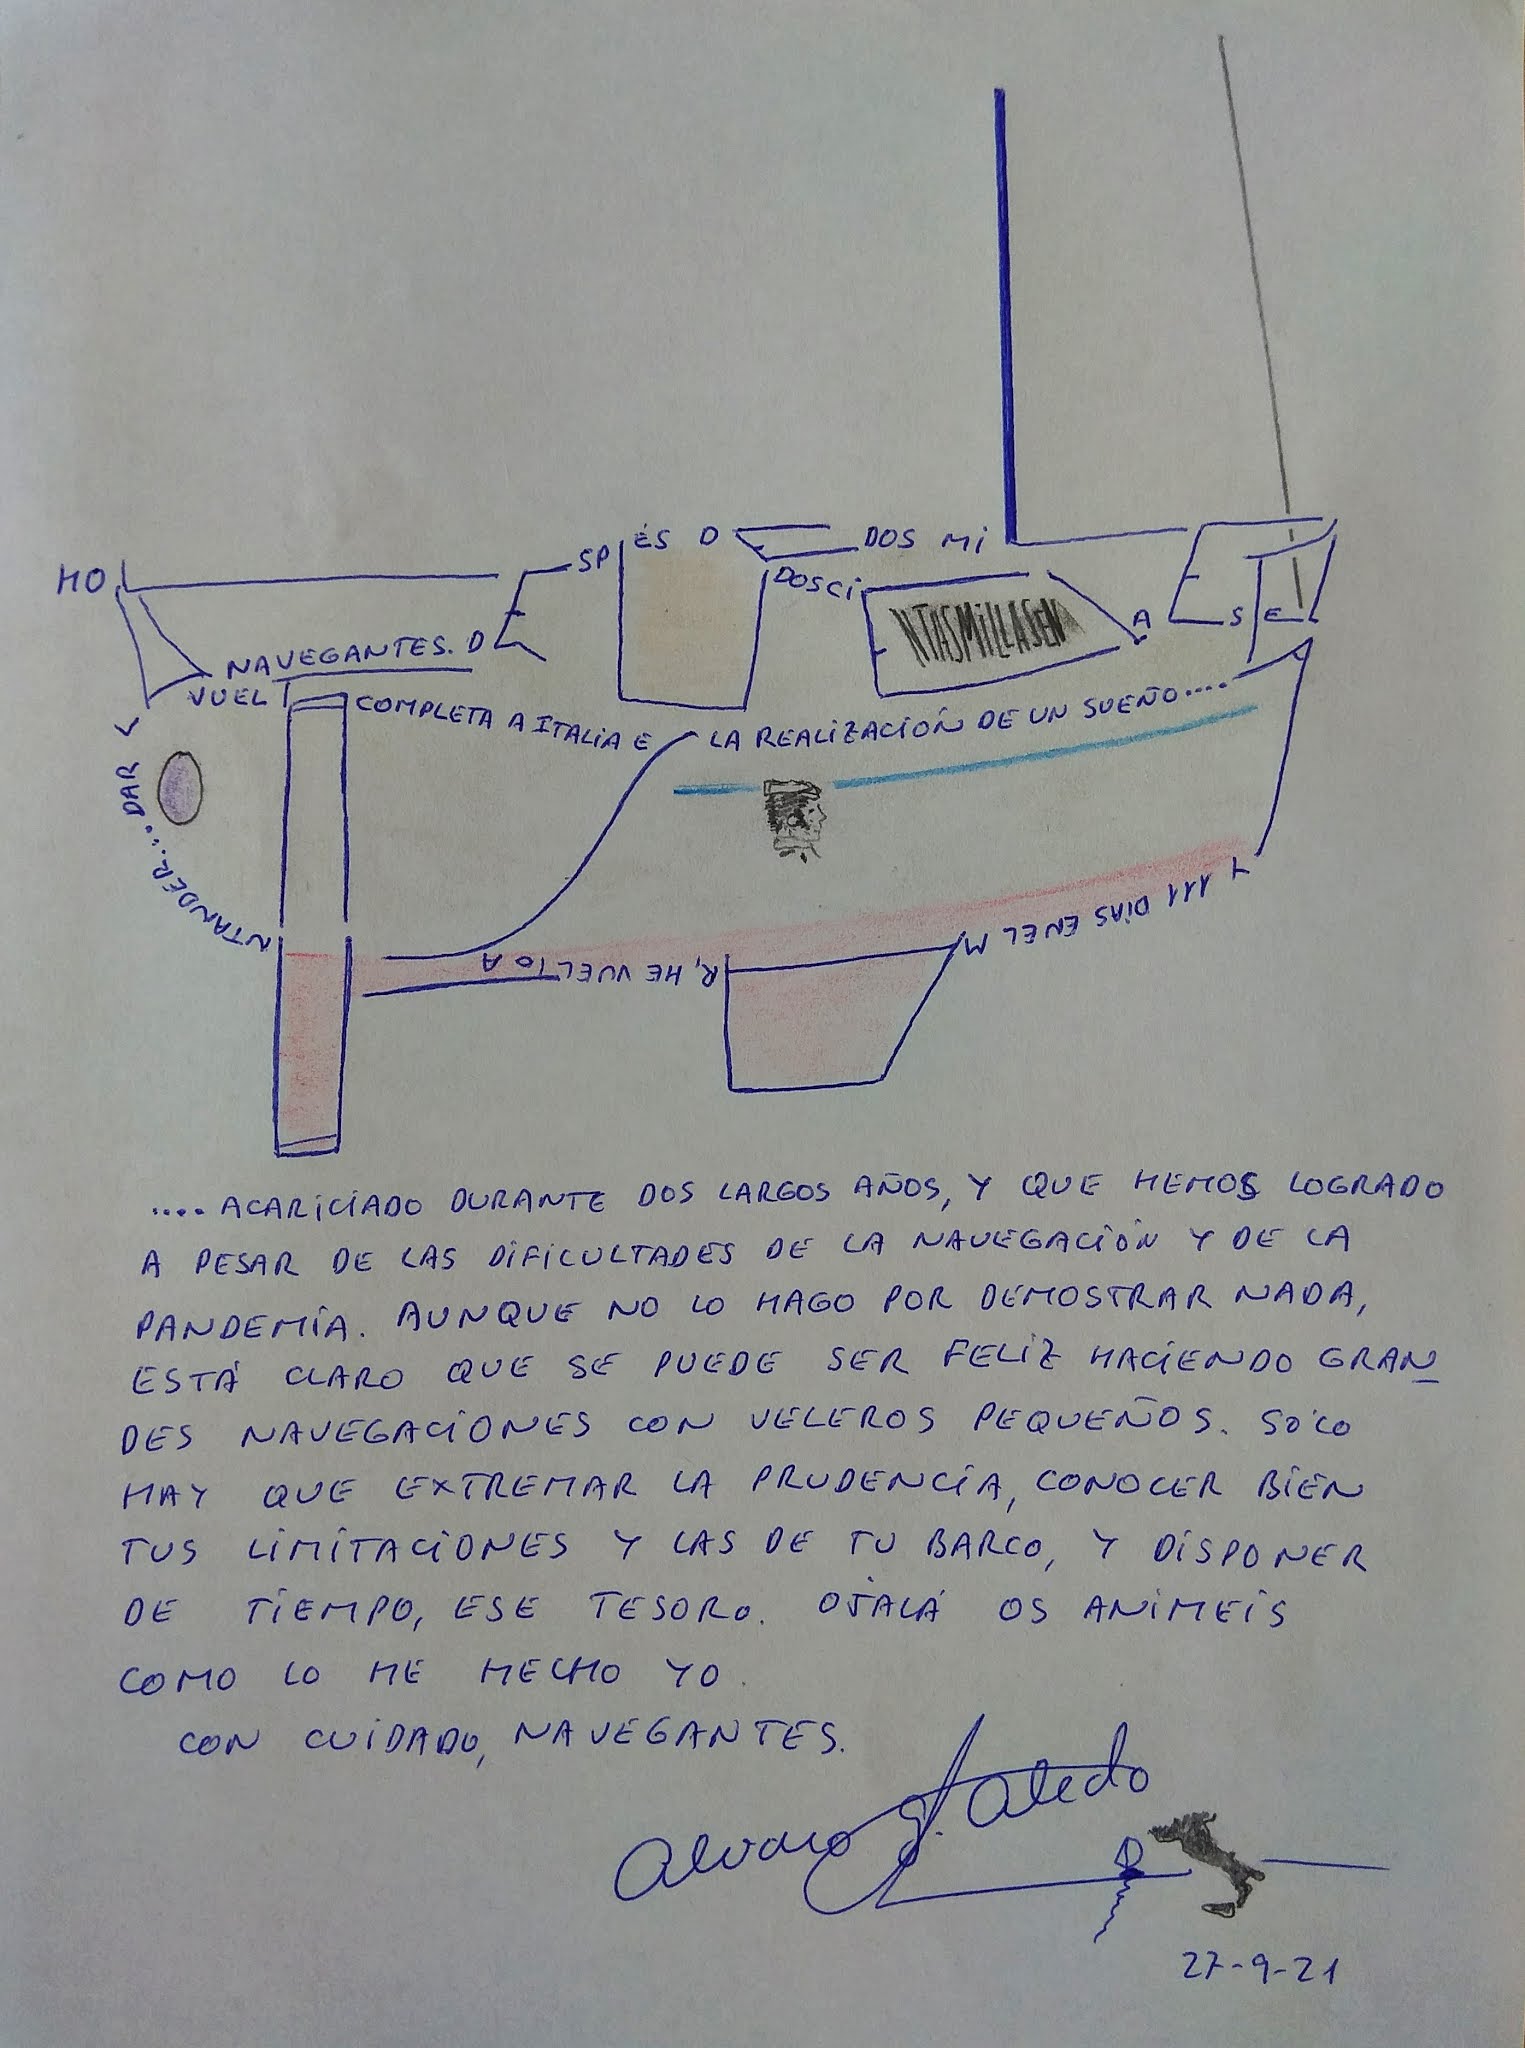 HO
NAVEGANTES. D
SP
ÉS D
DOS MI
DOSCI
NTASMILLASEN
A
S
E
Y 111 DÍAS EN EL M
R, HE VUELTO A
NTANDER.... DAR L
VUEL
COMPLETA A ITALIA E
LA REALIZACIÓN DE UN SUEÑO....
.... ACARICIADO DURANTE DOS LARGOS AÑOS, Y QUE HEMOS LOGRADO
A PESAR DE LAS DIFICULTADES DE LA NAVEGACIÓN Y DE LA
PANDEMÍA. AUNQUE NO LO HAGO POR DEMOSTRAR NADA,
ESTÁ CLARO QUE SE PUEDE SER FELIZ HACIENDO GRAN
DES NAVEGACIONES CON VELEROS PEQUEÑOS. SÓLO
HAY QUE EXTREMAR LA PRUDENCIA, CONOCER BIEN
TUS LIMITACIONES Y LAS DE TU BARCO, Y DISPONER
DE TIEMPO, ESE TESORO. OJALÁ OS ANIMEIS
COMO LO HE HECHO YO.
CON CUIDADO, NAVEGANTES.
Alvaro g. Aledo
27-9-21